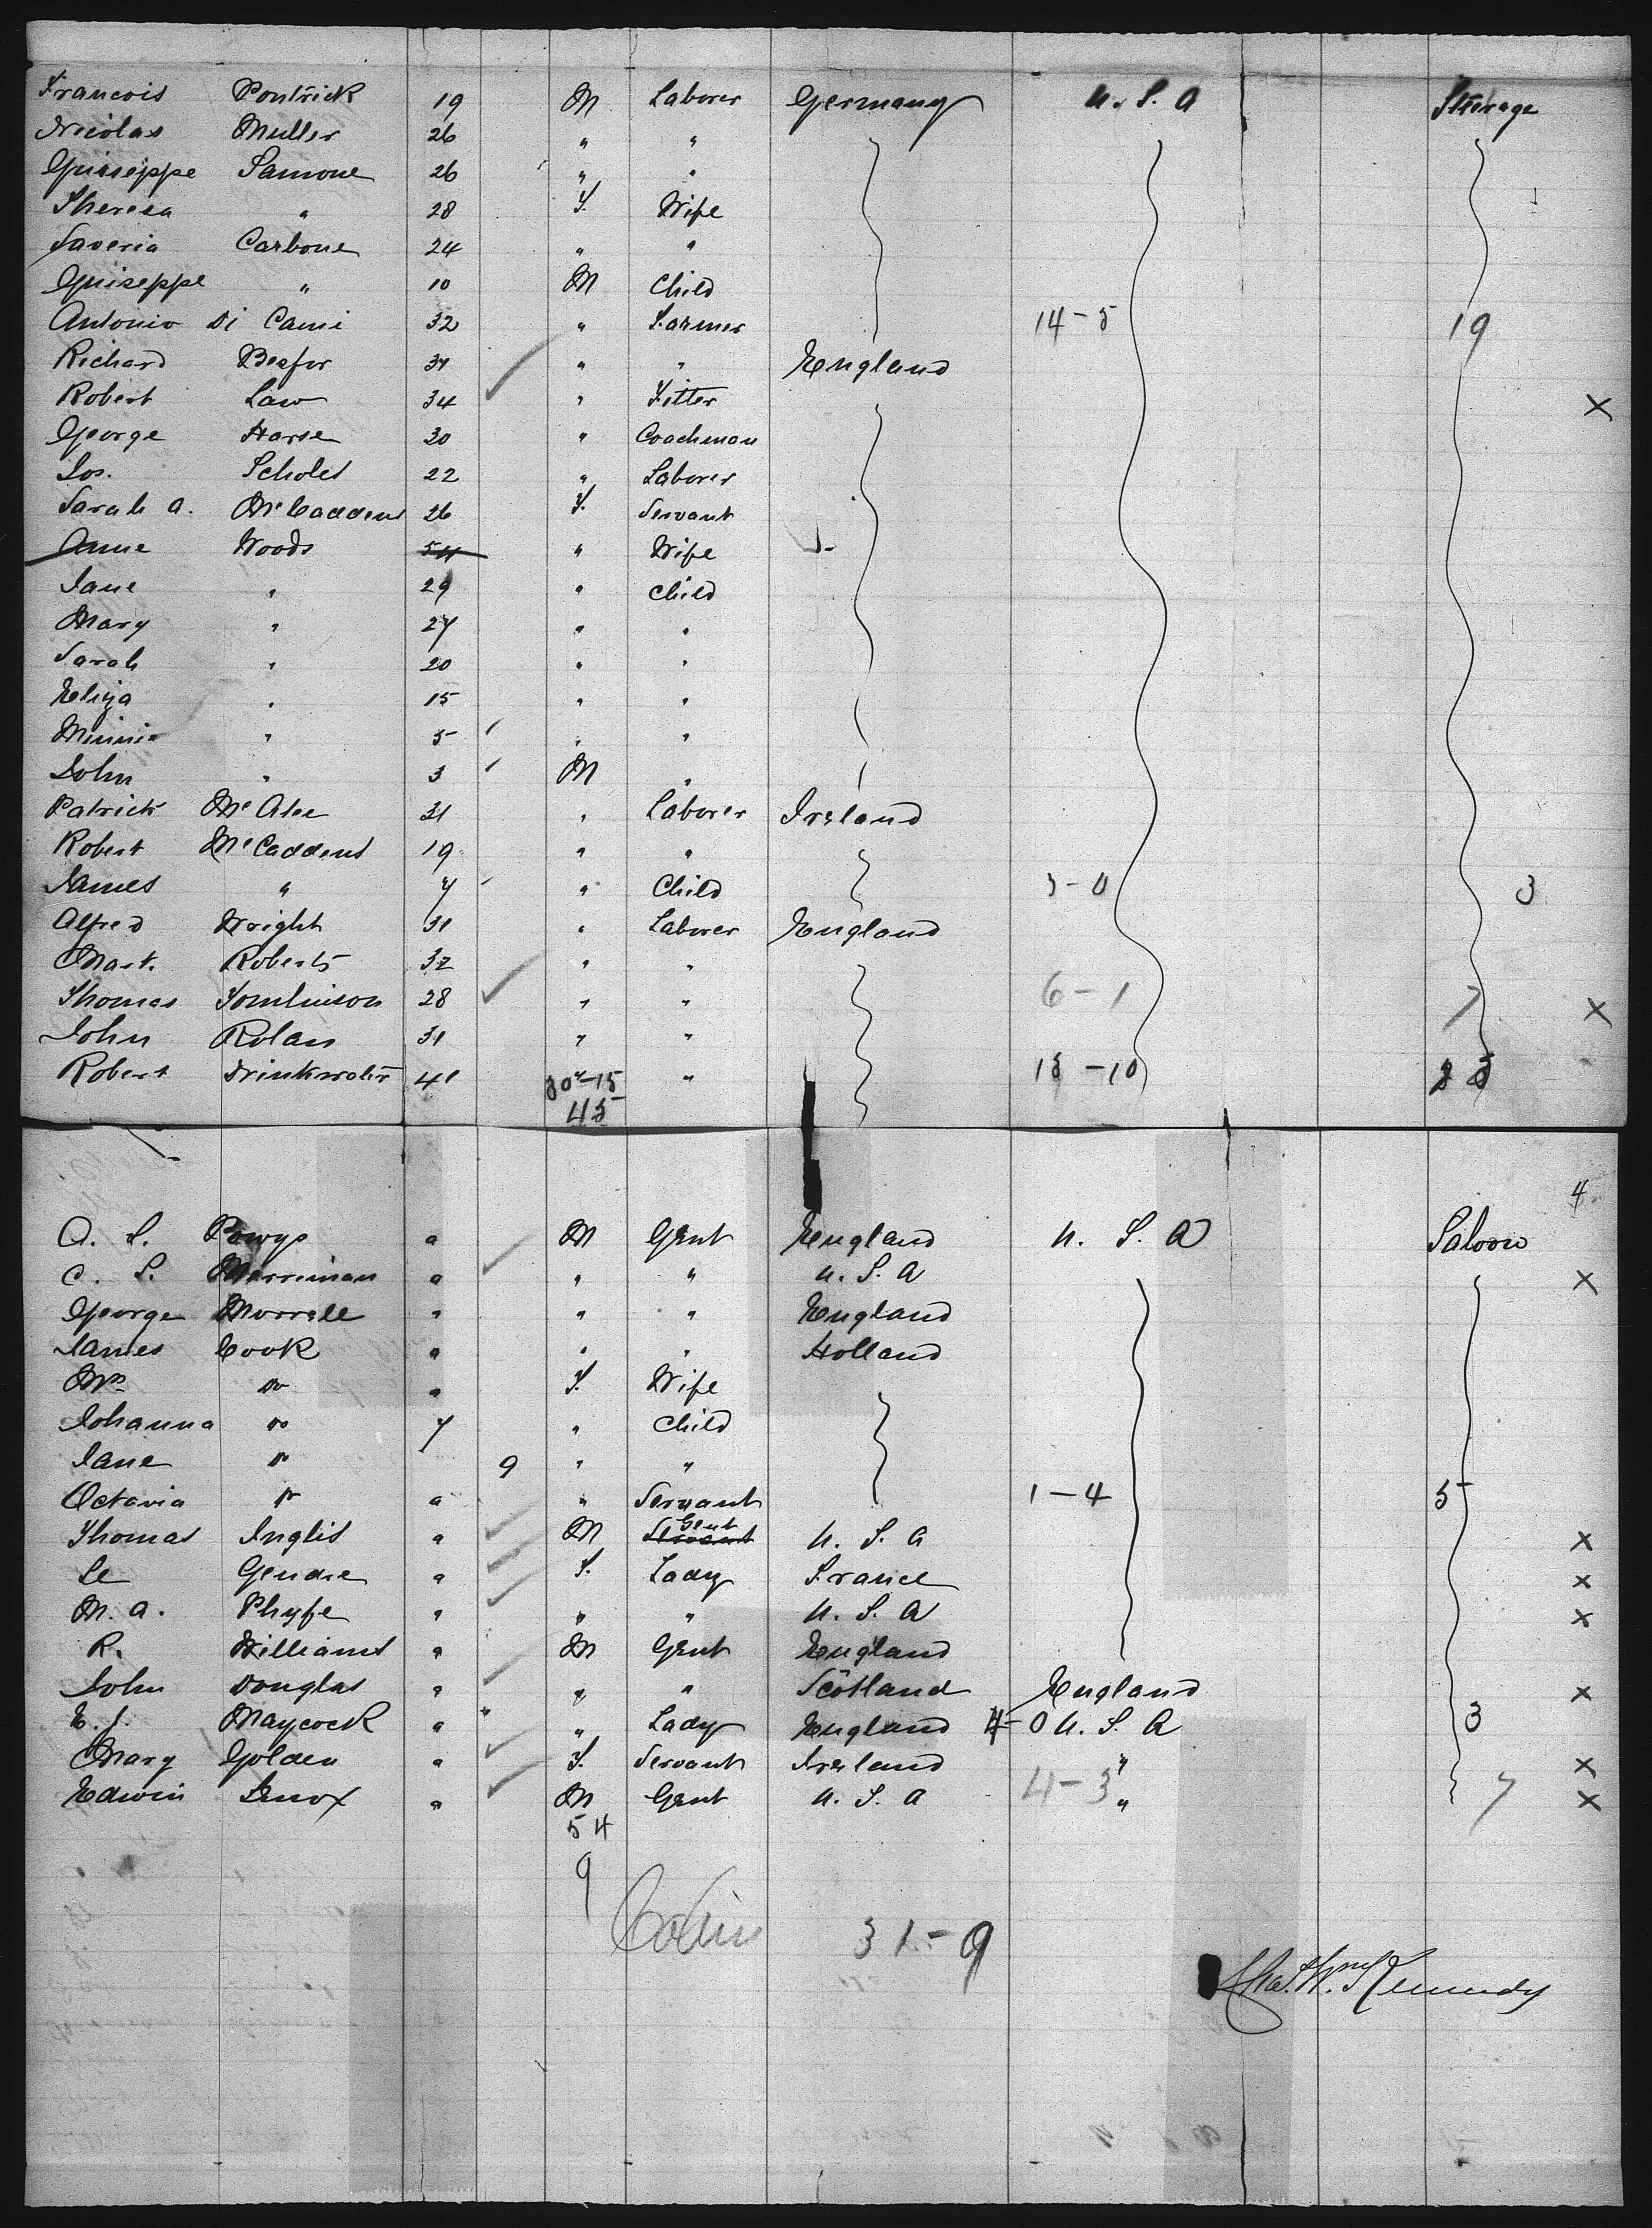 Francois Pontrick 19 M Laborer Germany U.S.A Steerage
Nicolas Muller 26 " "
Guiseppe Samone 26 " "
Theresa " 28 F. Wife
Saveria Carbone 24 " "
Guiseppe " 10 M Child
Antonio Di Cami 32 " Farmer 14-5 19
Richard 31 " " England
Robert Law 34 " Fitter X
George Harse 30 " Coachman
Jos. Scholes 22 " Laborer
Sarah A. McCaddens 26 F. Servant
Anne Woods 54 " Wife
Jane " 29 " Child
Mary " 27 " "
Sarah " 20 " "
Eliza " 15 " "
Minnie " 5 " "
John " 3 M "
Patrick McAtee 31 " Laborer Ireland
Robert McCaddens 19 " "
James " 7 " Child 3-0 3
Alfred Wright 31 " Laborer England
Mark. Roberts 32 " "
Thomas Tomlinson 28 " " 6-1 7 X
John Rolan 31 " "
Robert Drinkwater 41 30-15 " 18-10
45
4
A. S. Powys a M Gent England U. S. A Saloon
C. S. Merriman a " " U. S. A X
George Morrell " " " England
James Cook a " " Holland
Mrs Do a F. Wife
Johanna Do 7 " Child
Jane Do 9 " "
Octavia Do a " Servant 1-4 5
Thomas Inglis a M Servant Gent U. S. A X
Le Gendre a F. Lady France X
M. A. Phyfe " " " U. S. A X
R. Williams a M Gent England
John Douglas a " " Scotland England X
E. J. Maycock a " Lady England 4-0 U. S. A 3
Mary Golden a F. Servant Ireland " X
Edwin Lenox a M Gent U. S. A 4-3 " 7 X
54
9
31-9
Chas. Wm. Kennedy